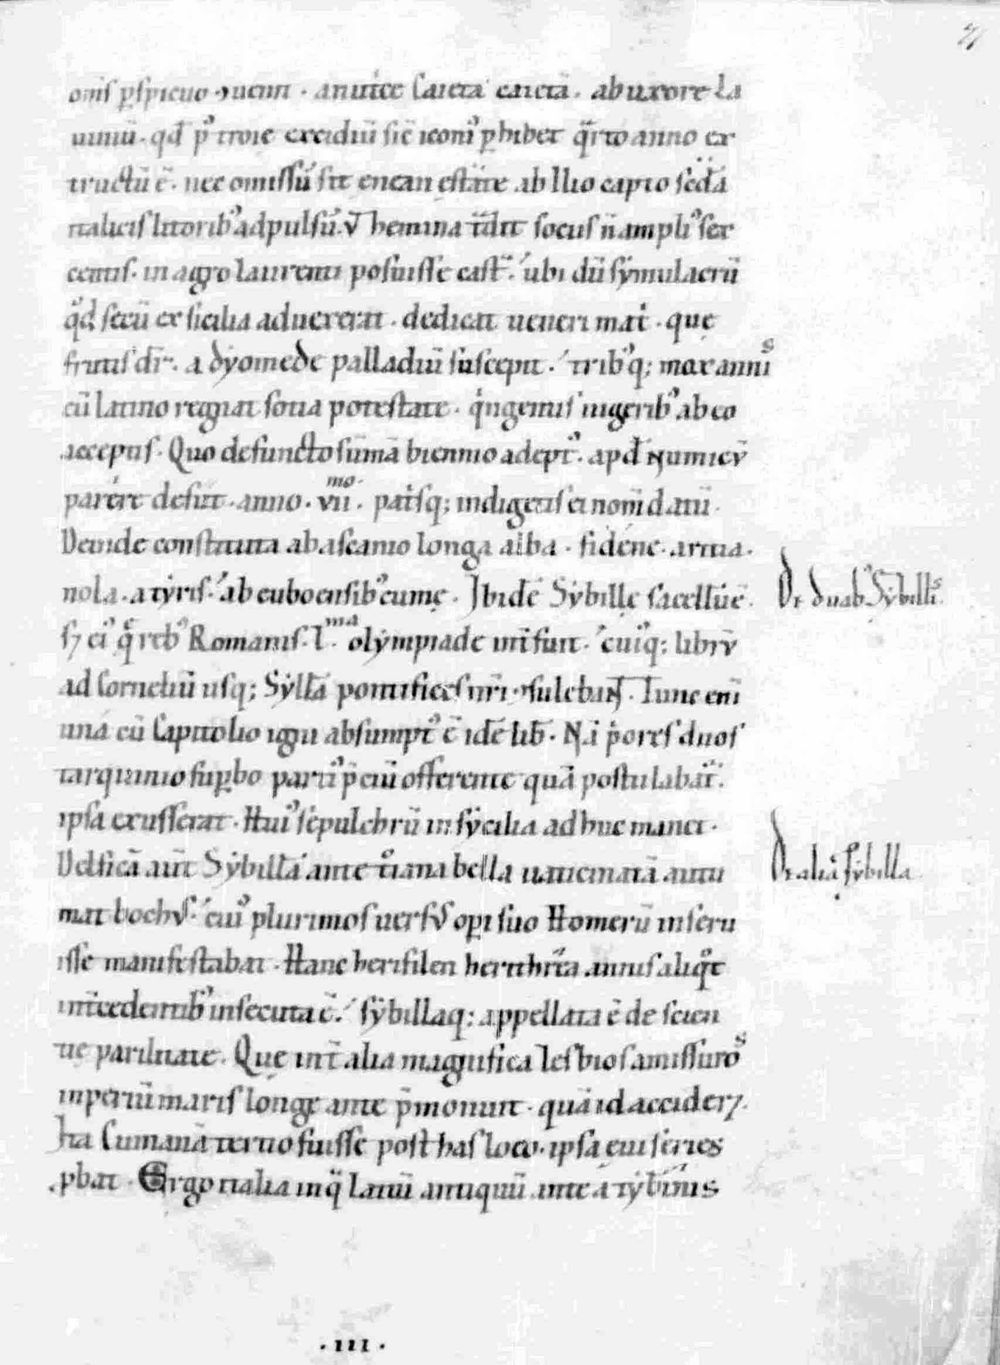 21
om̅is ꝑspicuo ꝯuenit · a nutrice Caieta caieta̅ · ab uxore la
uiniu̅ · qd̅ p᷒ troie excidiu̅ sic̅ iconi᷒ ꝑhibet q̈rto anno ex
tructu̅ e̅ · nec omissu̅ sit enean estate ab Ilio capto seda̅
italicis litorib᷒ adpulsu̅ · vͭ hemina tͣdit socus n̅ ampli᷒ sex
centis · in agro laurenti posuisse castͬ · ubi du̅ symulacru̅
qͦd secu̅ ex sicilia aduexerat · dedicat ueneri matͥ · quę
frutis dr̅ · a dyomede palladiu̅ suscepit · tribꝰq; mox annis
cu̅ latino regnat socia potestate · qͥngentis iugeribꝰ ab eo
acceptis · Quo defuncto su̅ma̅ biennio adeptꝰ · apd̅ Numicv̅
parere desiit · anno · vii · mo · patͥsq; indigetis ei nom̅ datu̅ ·
Deinde constituta ab ascanio longa alba · fidene · aritia ·
nola · a tyris · ab euboensibꝰ cumę · Ibide̅ Sybillę sacellu̅ e̅ ·
De duabꝰ Sybillis
s; eiꝰ q̅ rebꝰ Romanis · l · ma olympiade int̅fuit · cuiꝰq; libru̅
ad Corneliu̅ usq; Sylla̅ pontifices nr̅i ꝯsulebant · Tunc eni̅
una cu̅ Capitolio igni absumptꝰ e̅ · ide̅ lib̅ · Na̅ pͥores duos
tarquinio suꝑbo partiꝰ p̅ciu̅ offerente qua̅ postulabatͬ ·
ipsa exusserat · Huiꝰ sepulchru̅ in sycilia adhuc manet ·
Delfica̅ aut̅ Sybilla̅ ante tͦiana bella uaticinata̅ autu
De alia Sybilla
mat bochꝰ · cuiꝰ plurimos uersꝰ oꝑi suo Homeru̅ inseru
isse manifestabat · Hanc herifilen herithrea annis aliqͦt
int̅cedentibꝰ insecuta e̅ · sybillaq; appellata e̅ de scien
tie parilitate · Que int̅ alia magnifica lesbios amissuros
inperiu̅ maris longe ante p̅monuit · qua̅ id accider; ·
Ita Cumana̅ tertio fuisse post has loco · ipsa eui series
ꝓbat · Ergo italia in q̈ Latiu̅ antiquu̅ ante a tyberinis
· III ·